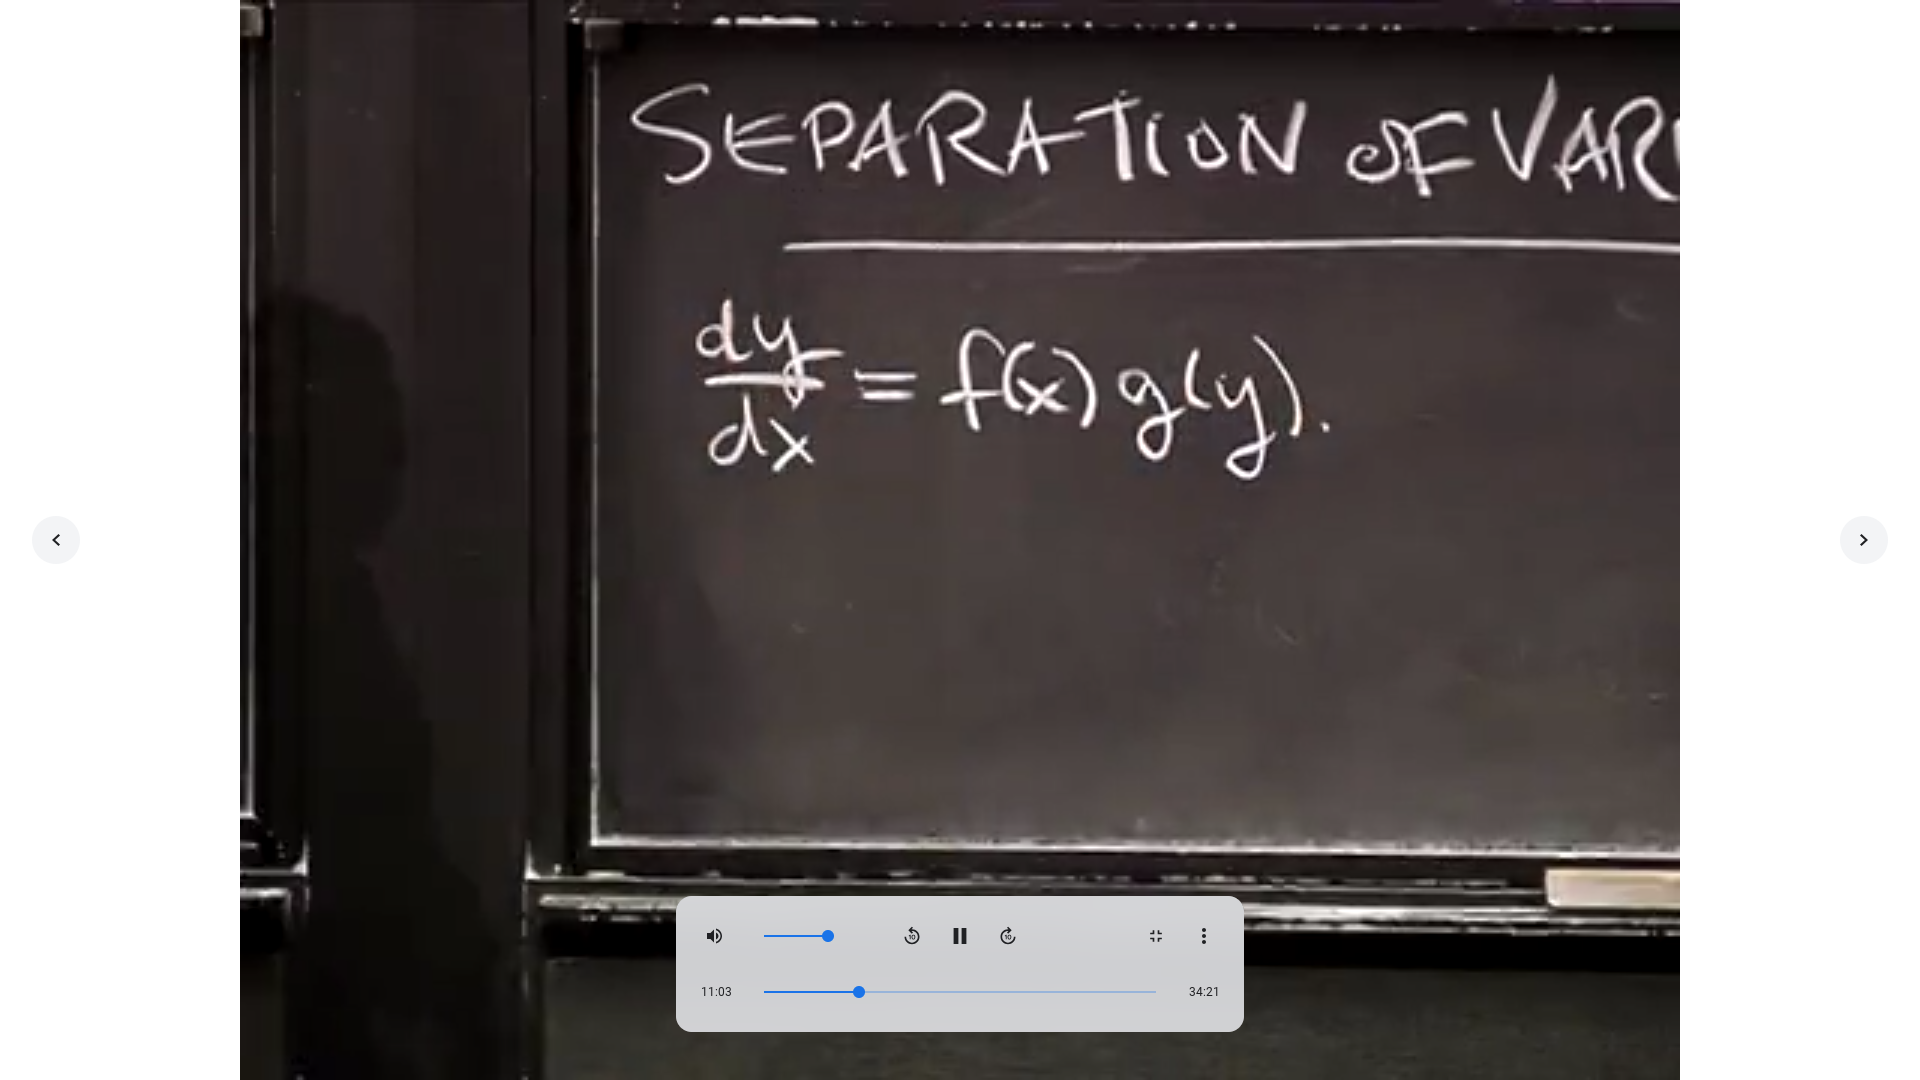 SEPARATION OF VAR
dy/dx = f(x) g(y).
11:03
34:21